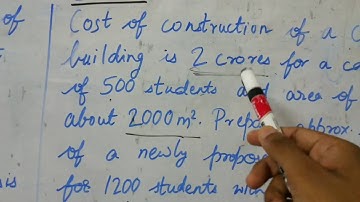 of Cost of construction of a
building is 2 crores for a
of 500 students and area of
about 2000 m². Prepare approx.
of a newly
for 1200 students